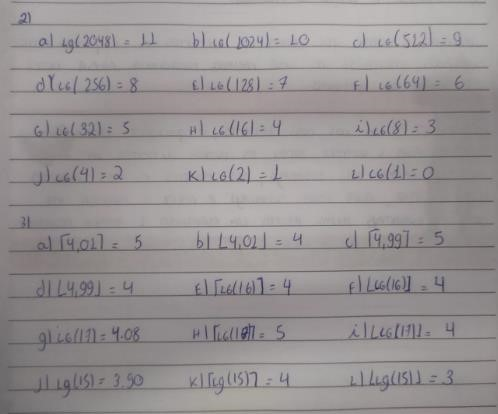 2)
a) lg(2048) = 11 b) LG(1024) = 10 c) LG(512) = 9
d) LG(256) = 8 E) LG(128) = 7 F) LG(64) = 6
G) LG(32) = 5 H) LG(16) = 4 i) LG(8) = 3
J) LG(4) = 2 K) LG(2) = 1 L) LG(1) = 0
3)
a) ⌈4,01⌉ = 5 b) ⌊4,01⌋ = 4 c) ⌈4,99⌉ = 5
d) ⌊4,99⌋ = 4 E) ⌈LG(16)⌉ = 4 F) ⌊LG(16)⌋ = 4
g) LG(17) = 4.08 H) ⌈LG(17)⌉ = 5 i) ⌊LG(17)⌋ = 4
J) Lg(15) = 3.90 K) ⌈Lg(15)⌉ = 4 L) ⌊Lg(15)⌋ = 3